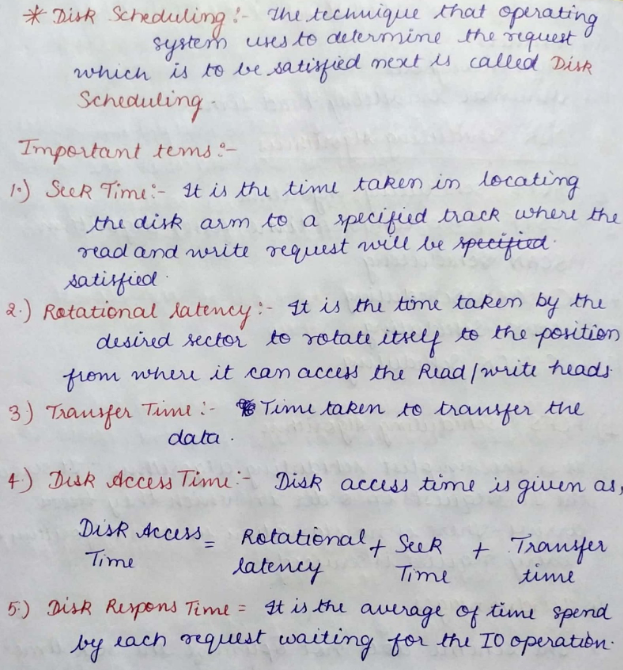 * Disk Scheduling :- The technique that operating
system uses to determine the request
which is to be satisfied next is called Disk
Scheduling.
Important terms :-
1.) Seek Time :- It is the time taken in locating
the disk arm to a specified track where the
read and write request will be specified
satisfied.
2.) Rotational latency :- It is the time taken by the
desired sector to rotate itself to the position
from where it can access the Read/write heads.
3.) Transfer Time :- Time taken to transfer the
data.
4.) Disk Access Time :- Disk access time is given as,
Disk Access Time = Rotational latency + Seek Time + Transfer time
5.) Disk Respons Time = It is the average of time spend
by each request waiting for the IO operation.